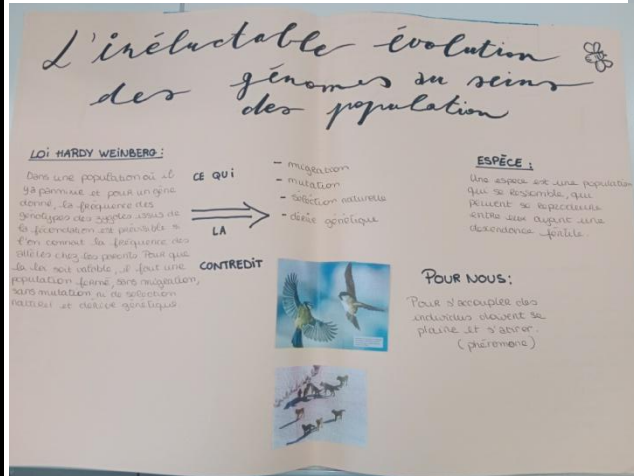 L'inéluctable évolution
des génomes au seins
des population
LOI HARDY WEINBERG :
Dans une population où il
y a panmixie et pour un gène
donné, la fréquence des
génotypes des zygotes issus de
la fécondation est prévisible si
l'on connait la fréquence des
allèles chez les parents. Pour que
la loi soit valable, il faut une
population fermé, sans migration,
sans mutation, ni de sélection
naturel et dérive génétique.
CE QUI
LA
CONTREDIT
- migration
- mutation
- sélection naturelle
- dérive génétique
ESPÈCE :
Une espèce est une population
qui se ressemble, qui
peuvent se reproduire
entre eux ayant une
descendance fertile.
POUR NOUS :
Pour s'accoupler des
individus doivent se
plaire et s'attirer.
(phéromone)